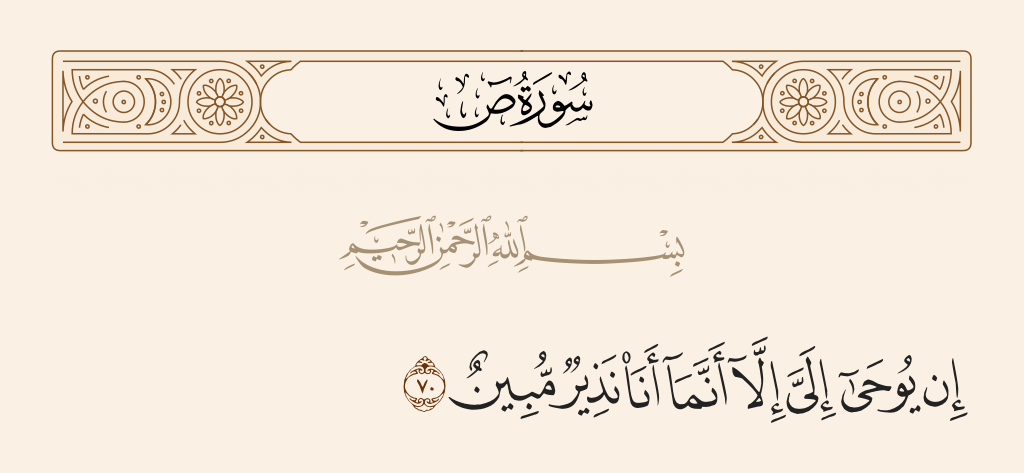 سُورَةُ صٓ
بِسْمِ ٱللَّهِ ٱلرَّحْمَٰنِ ٱلرَّحِيمِ
إِن يُوحَىٰٓ إِلَىَّ إِلَّآ أَنَّمَآ أَنَا۠ نَذِيرٌ مُّبِينٌ ٧٠